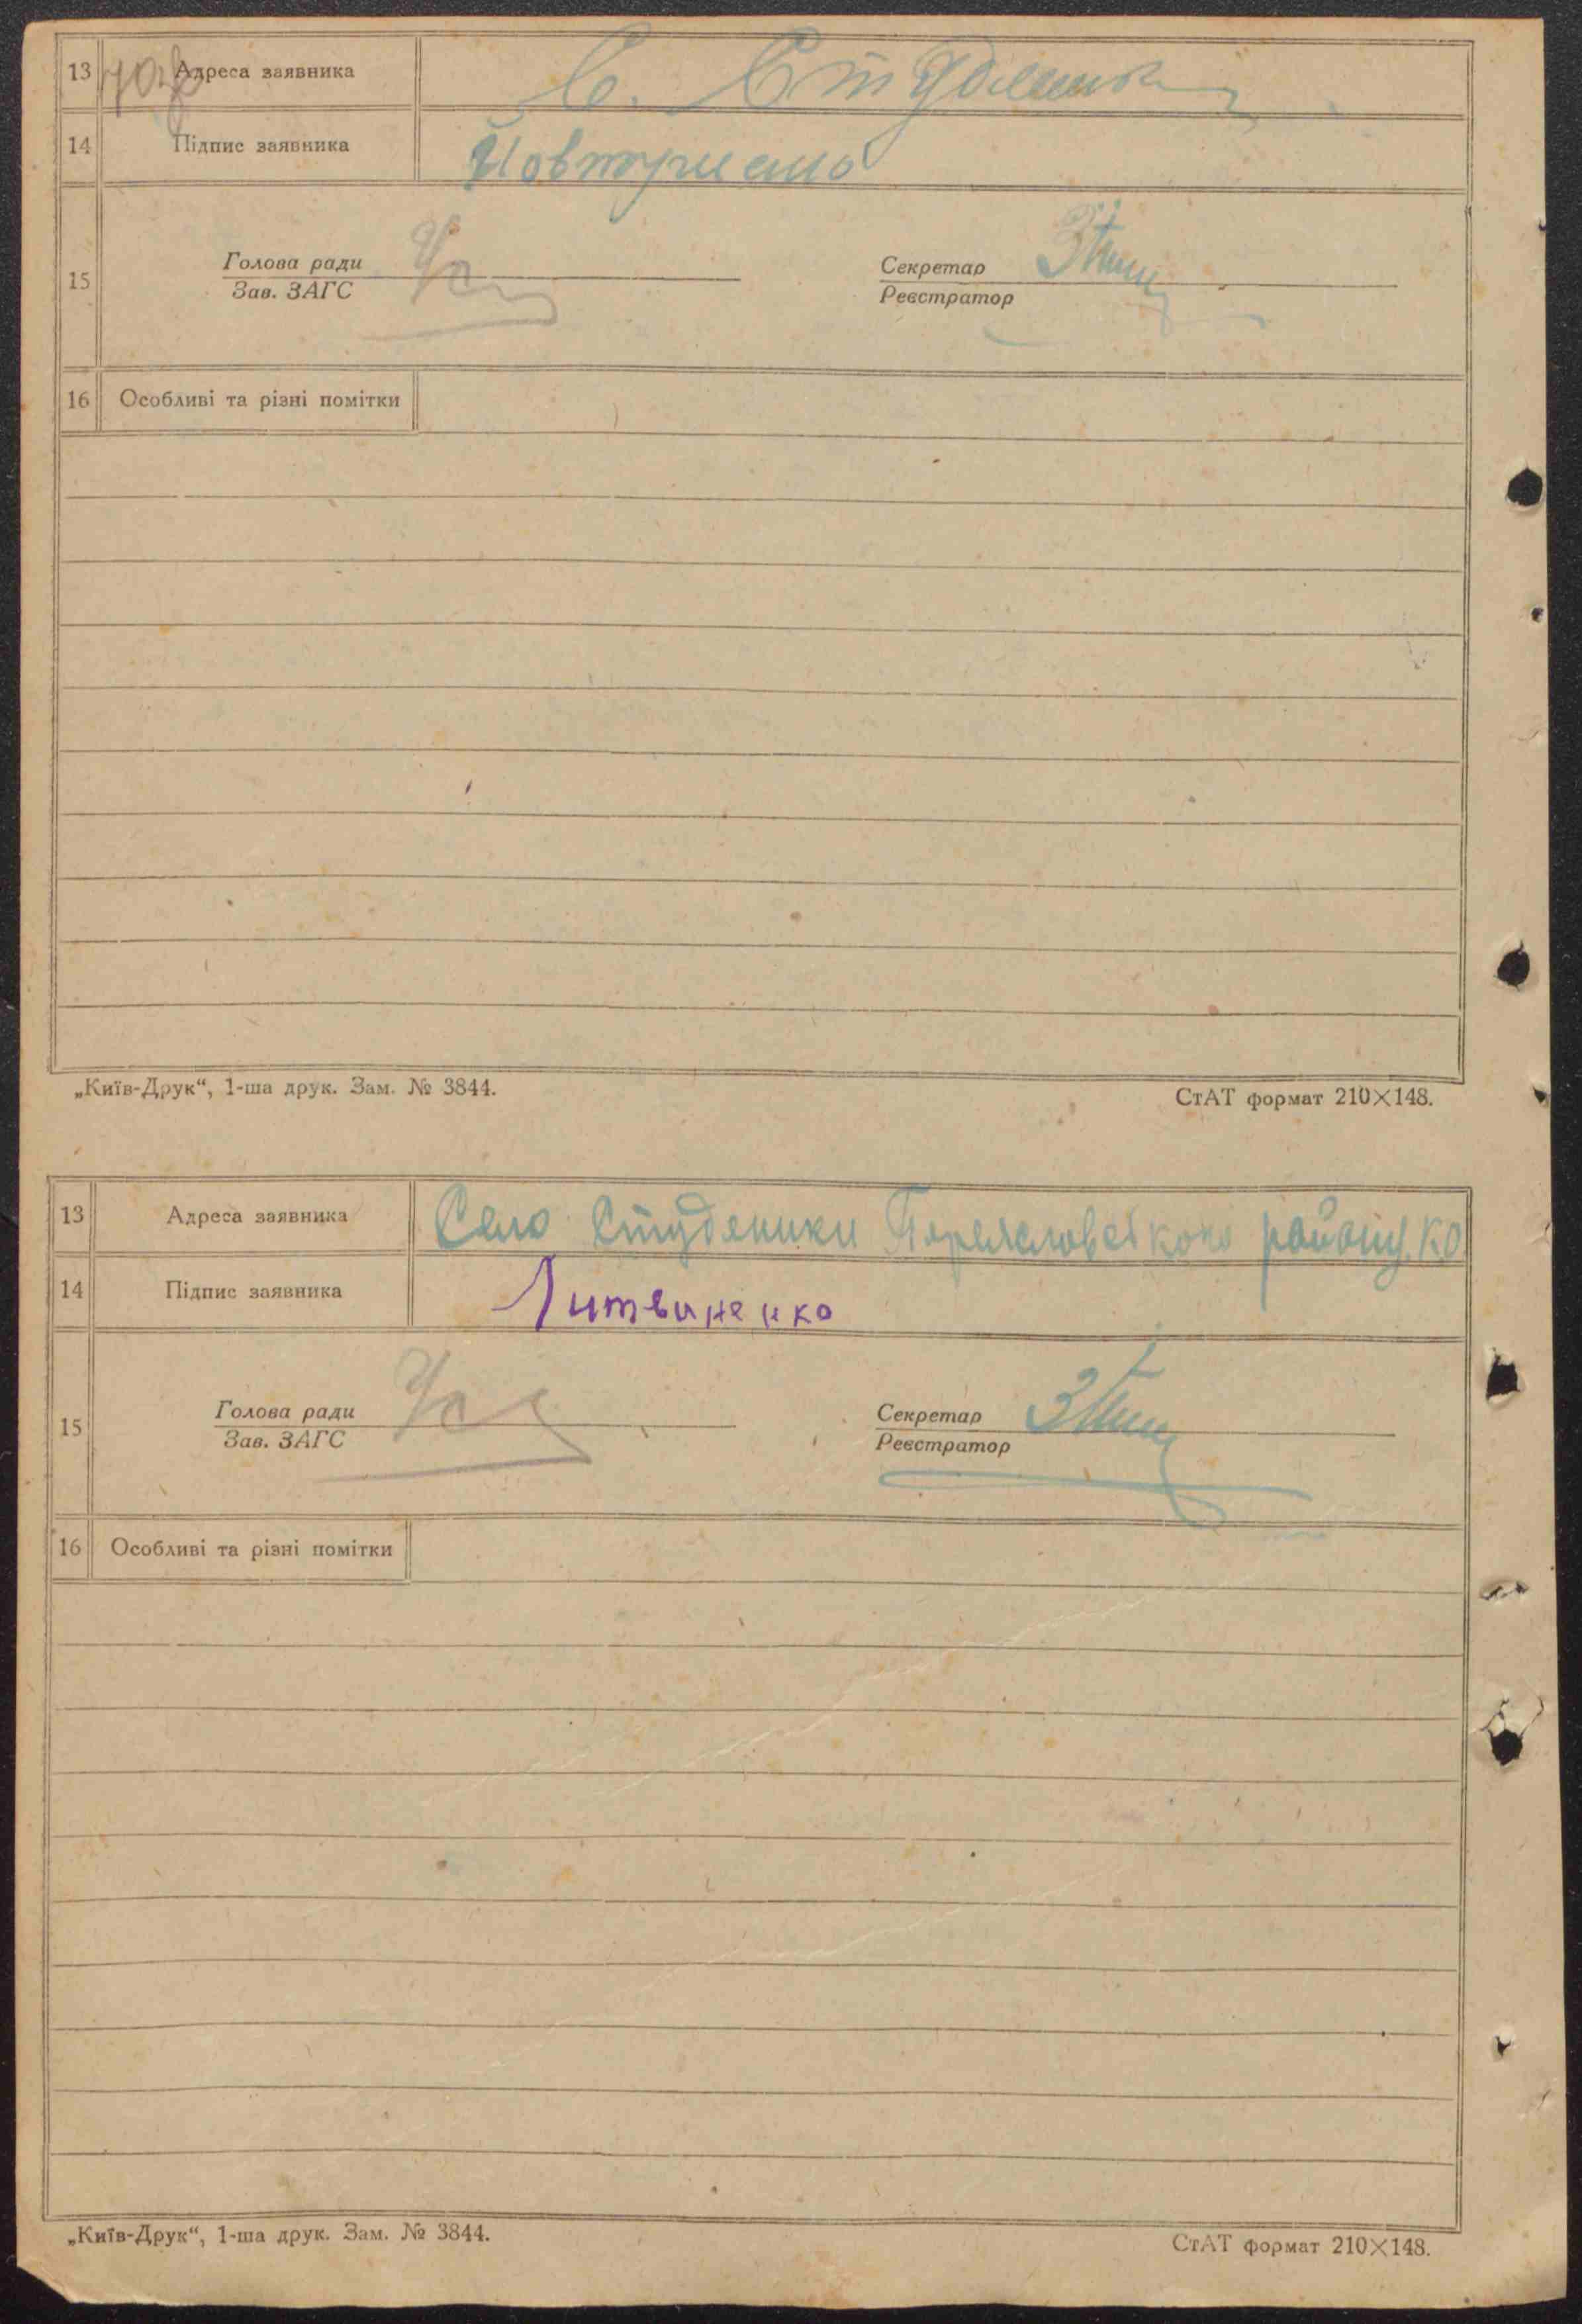 13 Адреса заявника С. Студеники
14 Підпис заявника
15 Голова ради Секретар
Зав. ЗАГС Реєстратор
16 Особливі та різні помітки
„Київ-Друк“, 1-ша друк. Зам. № 3844. СтАТ формат 210×148.
13 Адреса заявника Село Студеники Переяславського району К.О.
14 Підпис заявника Литвиненко
15 Голова ради Секретар
Зав. ЗАГС Реєстратор
16 Особливі та різні помітки
„Київ-Друк“, 1-ша друк. Зам. № 3844. СтАТ формат 210×148.